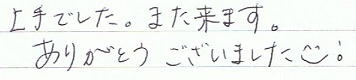 上手でした。また来ます。
ありがとうございました